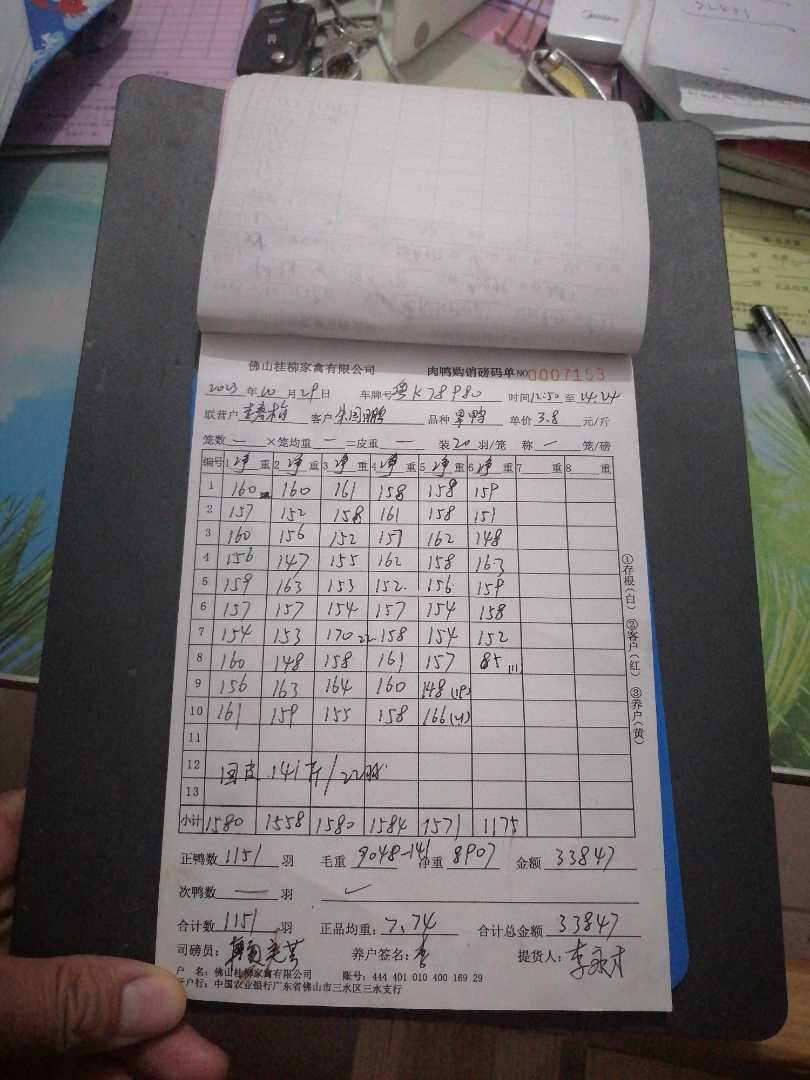 佛山桂柳家禽有限公司 肉鸭购销磅码单 NO 0007153
2023年10月29日 车牌号 粤K78980 时间12:50至14:24
联营户 客户 朱国鹏 品种 单价 3.8 元/斤
笼数 — ×笼均重 — =皮重 — 装20羽/笼 称 — 笼/磅
编号 1净重 2净重 3净重 4净重 5净重 6净重 7 重 8 重
1 160 160 161 158 158 159
2 157 152 158 161 158 151
3 160 156 152 157 162 148
4 156 147 155 162 158 163
5 159 163 153 152 156 159
6 157 157 154 157 154 158
7 154 153 170 22 158 154 152
8 160 148 158 161 157 85 (11)
9 156 163 164 160 148 (19)
10 161 159 155 158 166 (21)
11
12 回皮 141斤/22羽
13
小计 1580 1558 1580 1584 1571 1175
正鸭数 1151 羽 毛重 9048-141 净重 8907 金额 33847
次鸭数 — 羽
合计数 1151 羽 正品均重: 7.74 合计总金额 33847
司磅员: 养户签名: 李 提货人:
户 名: 佛山桂柳家禽有限公司 账号: 444 401 010 400 169 29
开户行: 中国农业银行广东省佛山市三水区三水支行
①存根(白) ②客户(红) ③养户(黄)
Midea